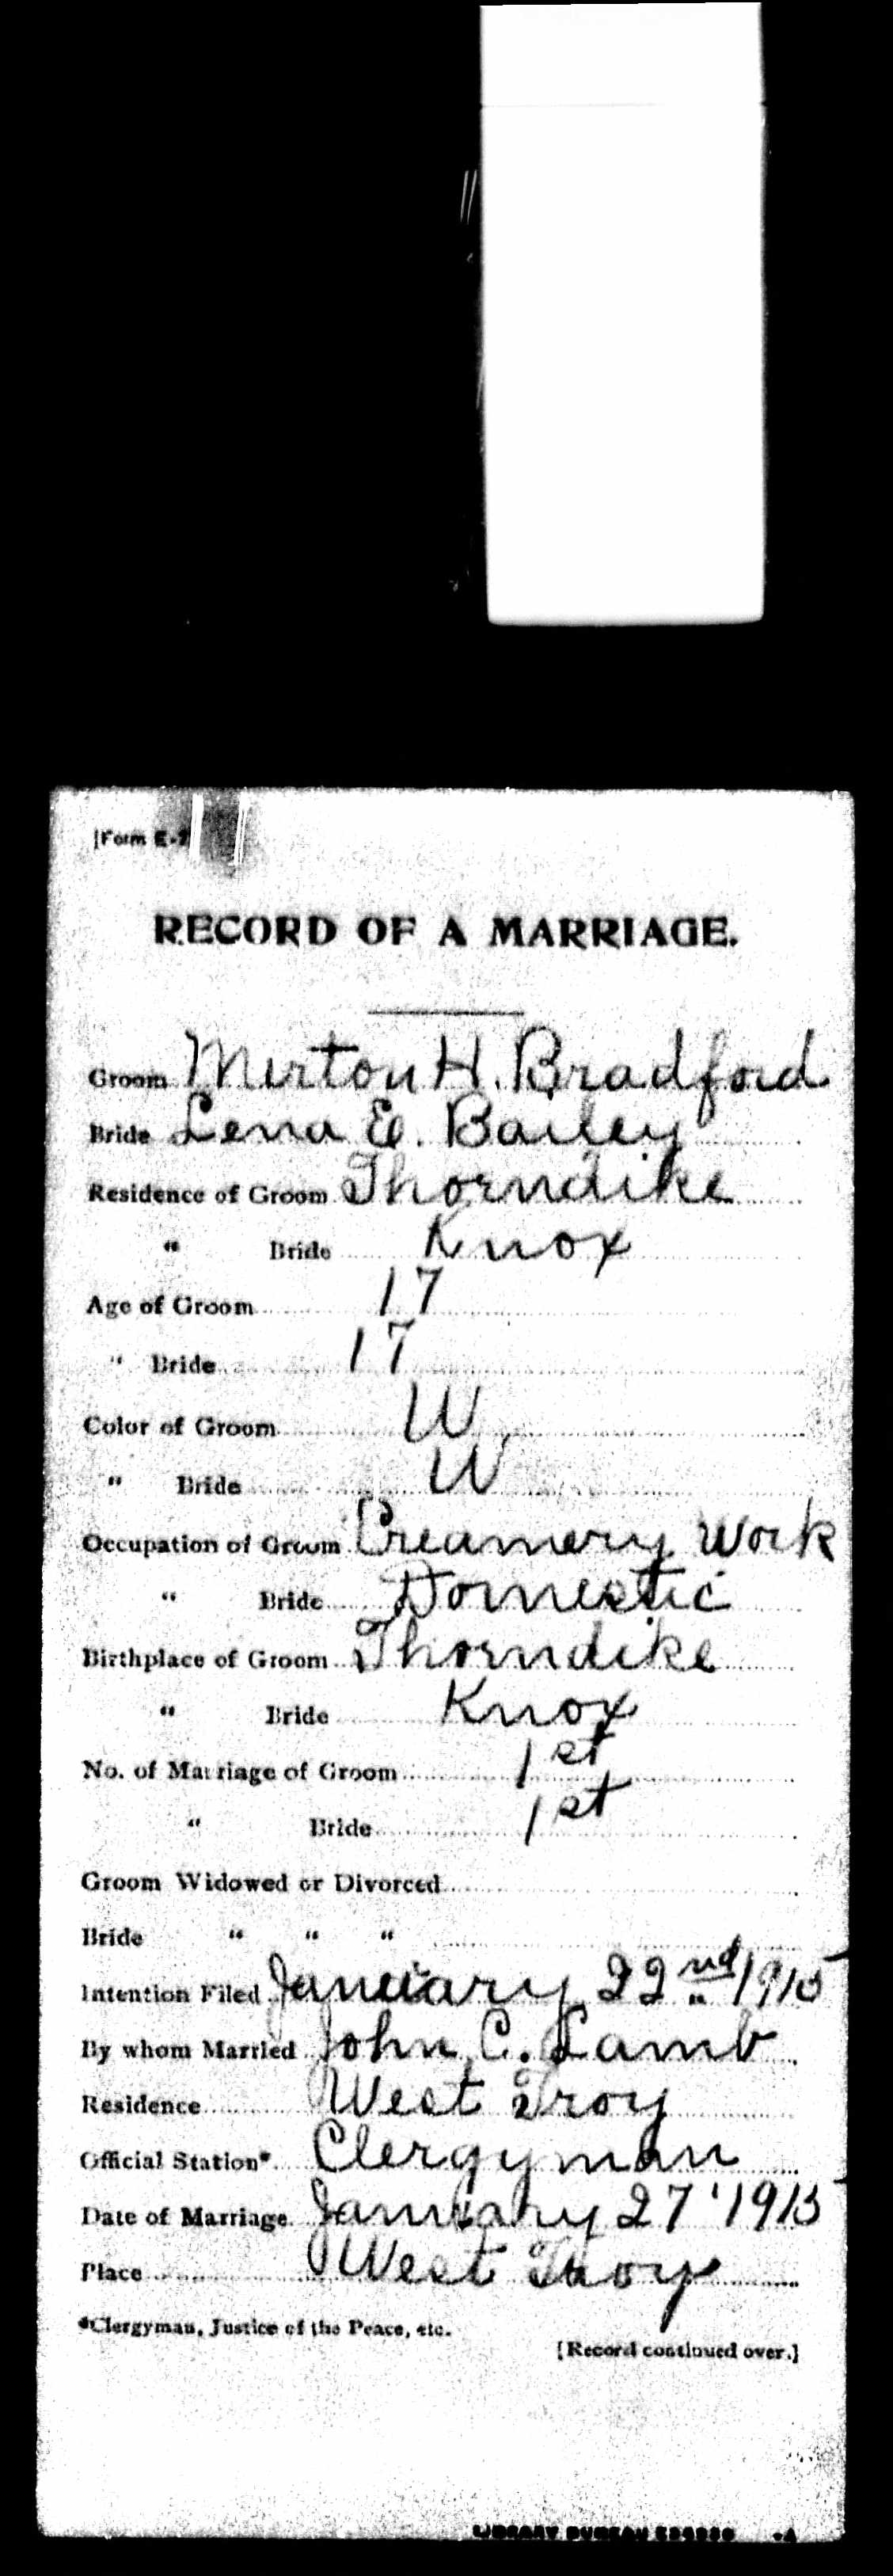 [Form E-
RECORD OF A MARRIAGE.
Groom Merton H. Bradford
Bride Lena E. Bailey
Residence of Groom Thorndike
" Bride Knox
Age of Groom 17
" Bride 17
Color of Groom W
" Bride W
Occupation of Groom Creamery Work
" Bride Domestic
Birthplace of Groom Thorndike
" Bride Knox
No. of Marriage of Groom 1st
" Bride 1st
Groom Widowed or Divorced
Bride " " "
Intention Filed January 22nd 1915
By whom Married John C. Lamb
Residence West Troy
Official Station* Clergyman
Date of Marriage January 27 1915
Place West Troy
*Clergyman, Justice of the Peace, etc.
[Record continued over.]
LIBRARY BUREAU